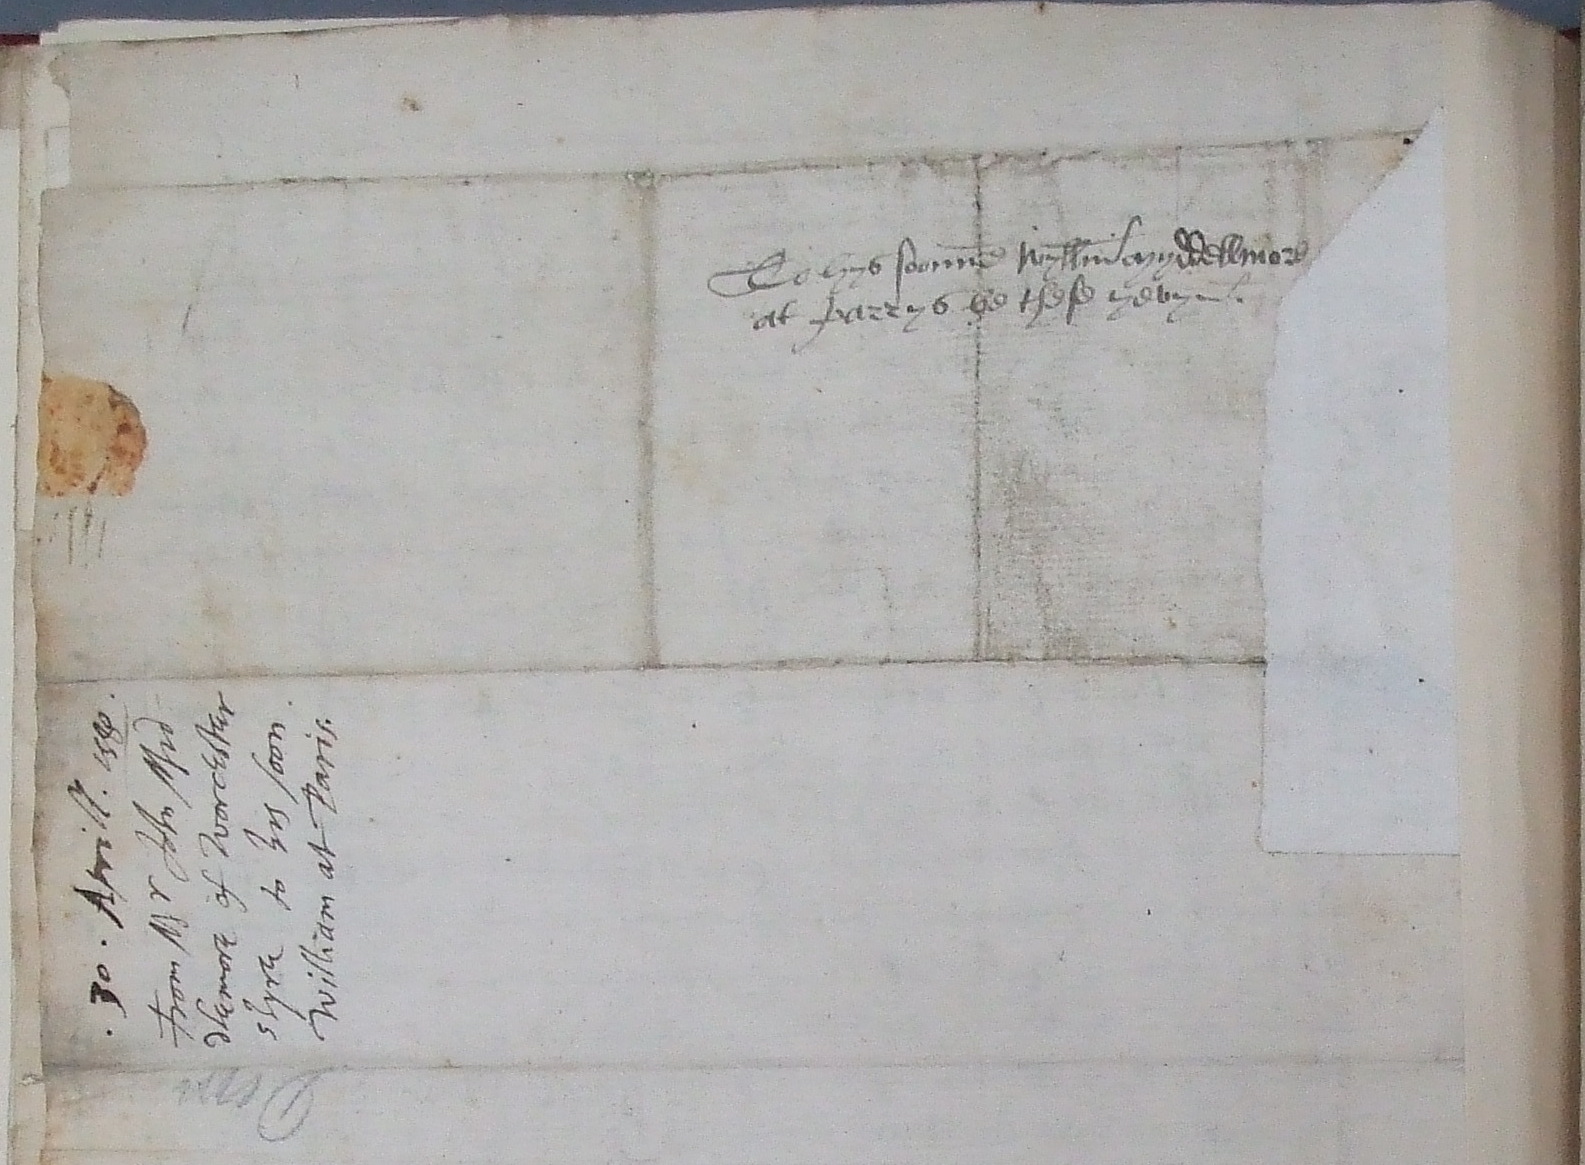 To hys soonne Wyllm̄ Myddellmore
at parrys be these yevyn.
.30. Aprill. 1580.
from Mr John Myd-
dlemore of Worcester
shyre to his soon.
William at Paris.